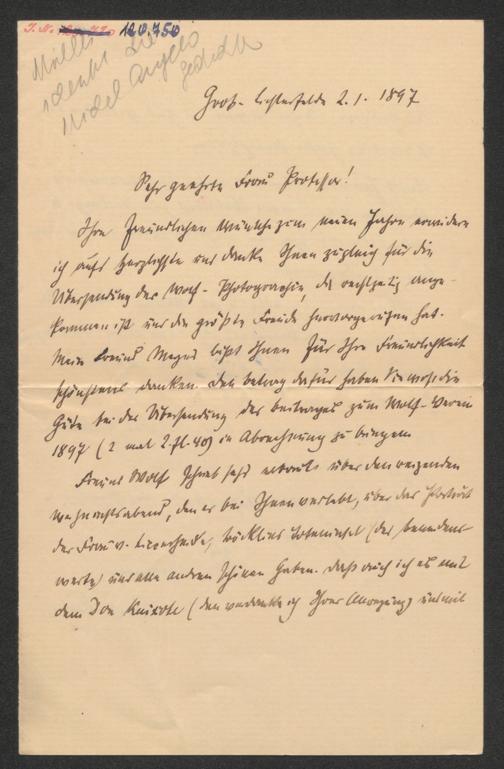 J. N. 120.750
Michel Angelo
Groß-Lichterfelde 2.1.1897
Sehr geehrte Frau Professor!
Ihre freundlichen Wünsche zum neuen Jahre erwidere
ich aufs herzlichste und danke Ihnen zugleich für die
Übersendung der Wolf-Photographie, die rechtzeitig ange-
kommen ist und die größte Freude hervorgerufen hat.
Mein Freund Mayer läßt Ihnen für Ihre Freundlichkeit
schönstens danken. Den Betrag dafür haben Sie wohl die
Güte bei der Übersendung des Beitrages zum Wolf-Verein
1897 (2 mal 2 fl. 40) in Abrechnung zu bringen.
Freund Wolf schrieb sehr über den reizenden
Weihnachtsabend, den er bei Ihnen verlebt, über das Porträt
der Frau v. Lipperheide, Böcklins Toteninsel (der
werthe) und alle andren schönen Gaben. Daß auch ich es mit
dem Don Quixote (den verdanke ich Ihrer Anregung) und mit